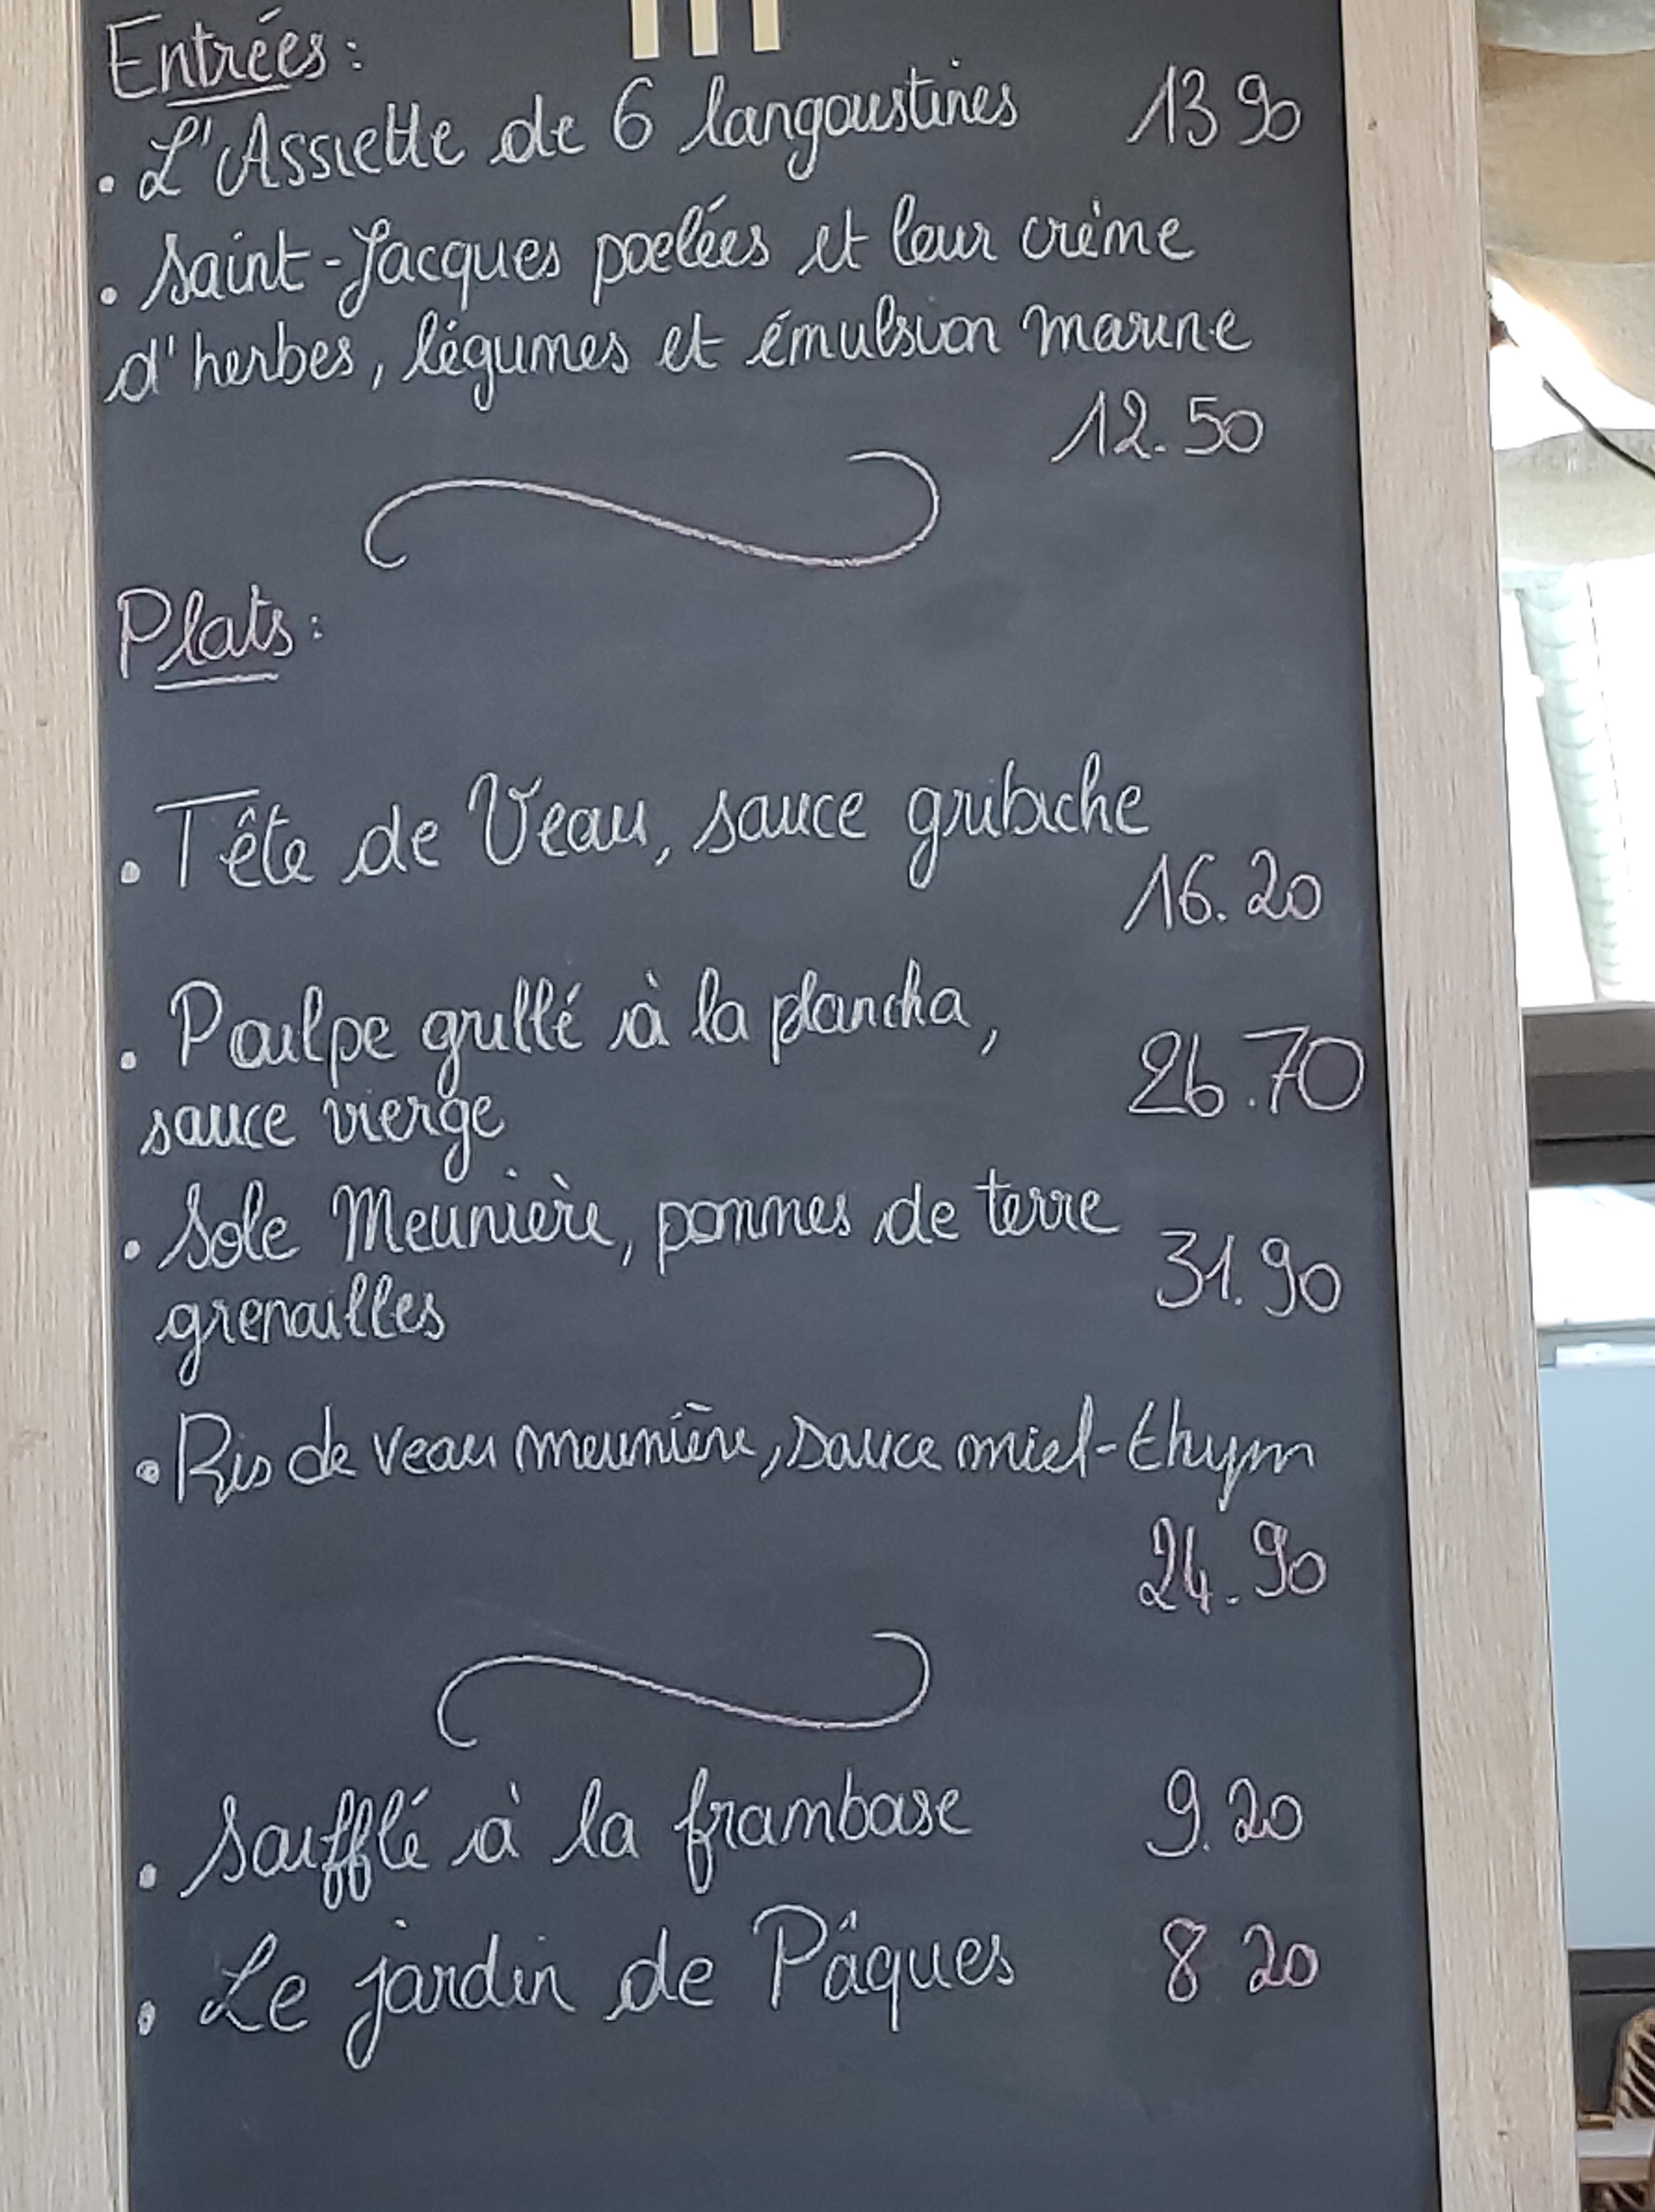 Entrées :
• L'Assiette de 6 langoustines 13 90
• Saint-Jacques poelées et leur crème
d'herbes, légumes et émulsion marine
12.50
Plats :
• Tête de Veau, sauce gribiche
16.20
• Poulpe grillé à la plancha,
sauce vierge 26.70
• Sole Meunière, pommes de terre
grenailles 31.90
• Ris de veau meunière, sauce miel-thym
24.90
• Soufflé à la framboise 9.20
• Le jardin de Pâques 8 20